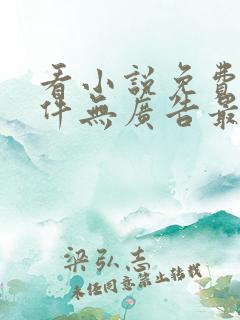 看小說免費
件無廣告最
梁弘志
未經同意禁止轉載